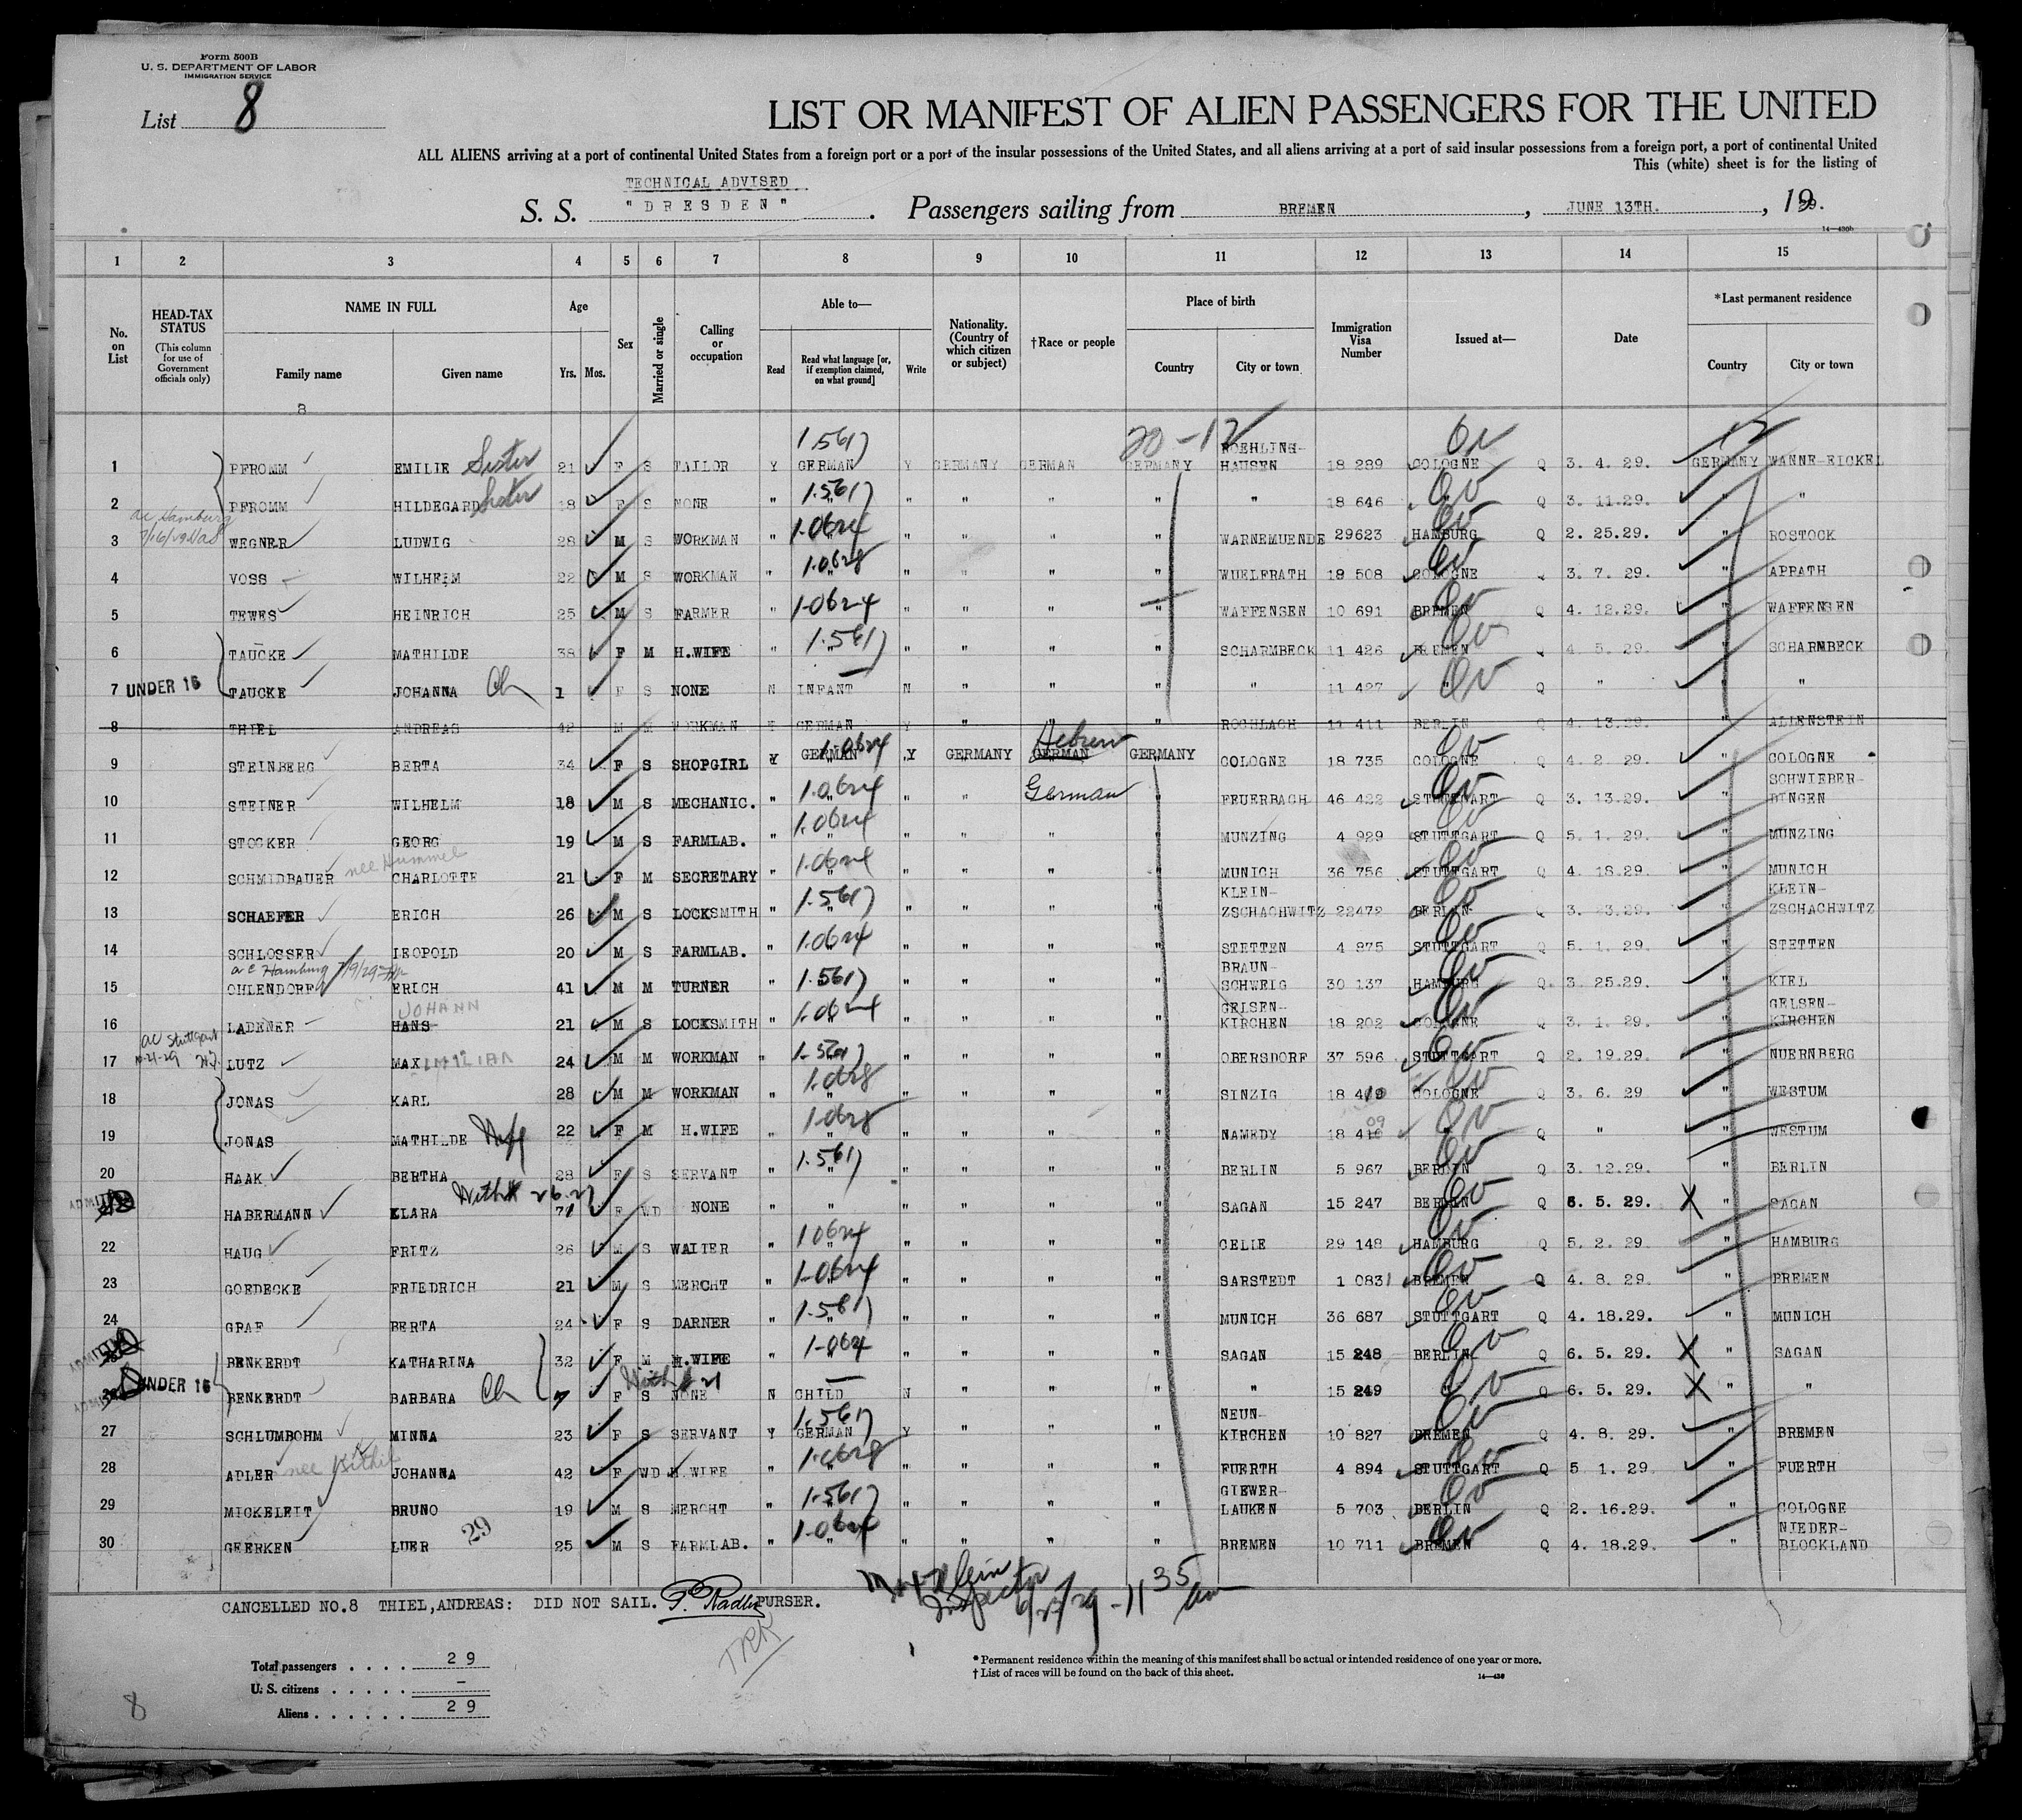 Form 500B
U. S. DEPARTMENT OF LABOR
IMMIGRATION SERVICE
List 8
LIST OR MANIFEST OF ALIEN PASSENGERS FOR THE UNITED
ALL ALIENS arriving at a port of continental United States from a foreign port or a port of the insular possessions of the United States, and all aliens arriving at a port of said insular possessions from a foreign port, a port of continental United
This (white) sheet is for the listing of
TECHNICAL ADVISED
S. S. "DRESDEN" . Passengers sailing from BREMEN , JUNE 13TH. , 1929.
14—430b
1 2 3 4 5 6 7 8 9 10 11 12 13 14 15
No. on List
HEAD-TAX STATUS (This column for use of Government officials only)
NAME IN FULL Family name Given name
Age Yrs. Mos.
Sex
Married or single
Calling or occupation
Able to— Read Read what language [or, if exemption claimed, on what ground] Write
Nationality. (Country of which citizen or subject)
†Race or people
Place of birth Country City or town
Immigration Visa Number
Issued at—
Date
*Last permanent residence Country City or town
8
20-12
1 PFROMM EMILIE Sister 21 F S TAILOR Y 1.5617 GERMAN Y GERMANY GERMAN GERMANY ROEHLING-HAUSEN 18 289 COLOGNE Q 3. 4. 29. GERMANY WANNE-EICKEL
2 PFROMM HILDEGARD Sister 18 F S NONE " 1.5617 " " " " " " 18 646 " Q 3. 11.29. " "
3 WEGNER LUDWIG 28 M S WORKMAN " 1.0624 " " " " " WARNEMUENDE 29623 HAMBURG Q 2. 25.29. " ROSTOCK
4 VOSS WILHEIM 22 M S WORKMAN " 1.0628 " " " " " WUELFRATH 18 508 COLOGNE Q 3. 7. 29. " APRATH
5 TEWES HEINRICH 25 M S FARMER " 1.0624 " " " " " WAFFENSEN 10 691 BREMEN Q 4. 12.29. " WAFFENSEN
6 TAUCKE MATHILDE 38 F M H.WIFE " 1.5617 " " " " " SCHARMBECK 11 426 BREMEN Q 4. 5. 29. " SCHARMBECK
7 UNDER 16 TAUCKE JOHANNA Ch 1 F S NONE N INFANT N " " " " 11 427 " Q " " "
8 THIEL ANDREAS 42 M M WORKMAN Y GERMAN Y " " " ROCHLACH 11 411 BERLIN Q 4. 13.29. " ALLENSTEIN
9 STEINBERG BERTA 34 F S SHOPGIRL Y 1.0624 GERMAN Y GERMANY GERMAN Hebrew GERMANY COLOGNE 18 735 COLOGNE Q 4. 2. 29. " COLOGNE
10 STEINER WILHELM 18 M S MECHANIC. " 1.0624 " " " German " FEUERBACH 46 422 STUTTGART Q 3. 13.29. " SCHWIEBER-DINGEN
11 STOCKER GEORG 19 M S FARMLAB. " 1.0624 " " " " " MUNZING 4 929 STUTTGART Q 5. 1. 29. " MUNZING
12 SCHMIDBAUER nee Hummel CHARLOTTE 21 F M SECRETARY " 1.0624 " " " " " MUNICH 36 756 STUTTGART Q 4. 18.29. " MUNICH
13 SCHAEFER ERICH 26 M S LOCKSMITH " 1.5617 " " " " " KLEIN-ZSCHACHWITZ 22472 BERLIN Q 3. 23.29. " KLEIN-ZSCHACHWITZ
14 SCHLOSSER LEOPOLD 20 M S FARMLAB. " 1.0624 " " " " " STETTEN 4 875 STUTTGART Q 5. 1. 29. " STETTEN
15 OHLENDORF ERICH 41 M M TURNER " 1.5617 " " " " " BRAUN-SCHWEIG 30 137 HAMBURG Q 3. 25.29. " KIEL
16 LADENER HANS JOHANN 21 M S LOCKSMITH " 1.0624 " " " " " GELSEN-KIRCHEN 18 202 COLOGNE Q 3. 1. 29. " GELSEN-KIRCHEN
17 LUTZ MAXIMILIAN 24 M M WORKMAN " 1.5617 " " " " " OBERSDORF 37 596 STUTTGART Q 2. 19.29. " NUERNBERG
18 JONAS KARL 28 M M WORKMAN " 1.0628 " " " " " SINZIG 18 410 COLOGNE Q 3. 6. 29 " WESTUM
19 JONAS MATHILDE Wife 22 F M H.WIFE " 1.0628 " " " " " NAMEDY 18 410 09 " Q " " WESTUM
20 HAAK BERTHA 28 F S SERVANT " 1.5617 " " " " " BERLIN 5 967 BERLIN Q 3. 12.29. " BERLIN
HABERMANN KLARA With 26.27 71 F WD NONE " " " " " " SAGAN 15 247 BERLIN Q 6. 5. 29. " SAGAN
22 HAUG FRITZ 26 M S WAITER " 1.0624 " " " " " CELLE 29 148 HAMBURG Q 5. 2. 29. " HAMBURG
23 GOEDECKE FRIEDRICH 21 M S MERCHT " 1.0624 " " " " " SARSTEDT 1 0831 BREMEN Q 4. 8. 29. " BREMEN
24 GRAF BERTA 24 F S DARNER " 1.5617 " " " " " MUNICH 36 687 STUTTGART Q 4. 18.29. " MUNICH
BENKERDT KATHARINA 32 F M H.WIFE " 1.064 " " " " " SAGAN 15 248 BERLIN Q 6. 5. 29. " SAGAN
UNDER 16 BENKERDT BARBARA Ch 7 F S NONE With 21 N CHILD N " " " " 15 249 " Q 6. 5. 29. " "
27 SCHLUMBOHM MINNA 23 F S SERVANT Y 1.5617 GERMAN Y " " " NEUN-KIRCHEN 10 827 BREMEN Q 4. 8. 29. " BREMEN
28 ADLER nee JOHANNA 42 F WD H.WIFE " 1.0628 " " " " " FUERTH 4 894 STUTTGART Q 5 1. 29. " FUERTH
29 MICKELEIT BRUNO 19 M S MERCHT " 1.5617 " " " " " GIEWER-LAUKEN 5 703 BERLIN Q 2. 16.29. " COLOGNE
30 GEERKEN LUER 29 25 M S FARMLAB. " 1.0624 " " " " " BREMEN 10 711 BREMEN Q 4. 18.29. " NIEDER-BLOCKLAND
CANCELLED NO.8 THIEL,ANDREAS: DID NOT SAIL. PURSER.
Inspector
Total passengers . . . . 29
U. S. citizens . . . . . -
Aliens . . . . . . 29
8
* Permanent residence within the meaning of this manifest shall be actual or intended residence of one year or more.
† List of races will be found on the back of this sheet.
14—430